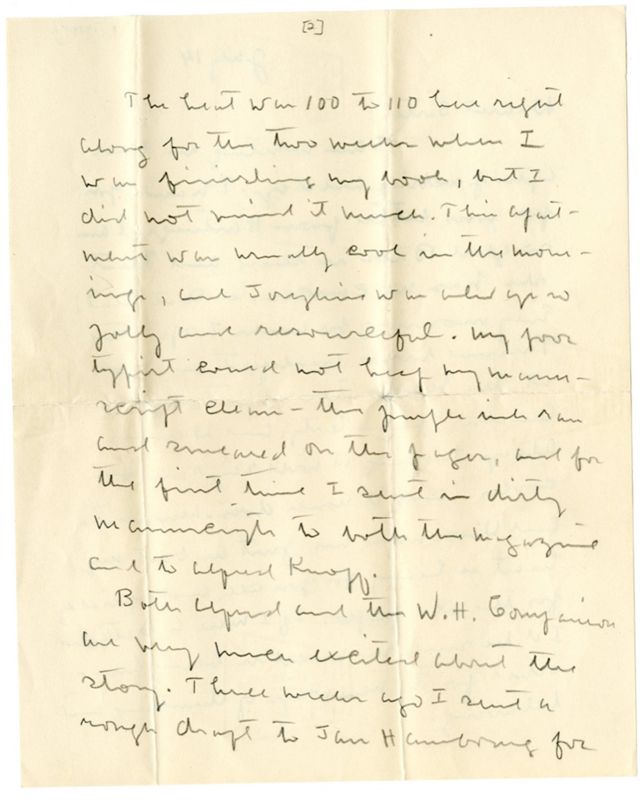 [2]
The heat was 100 to 110 here right
along for the two weeks when I
was finishing my book, but I
did not mind it much. This apart-
ment was usually cool in the morn-
ings, and Josephine was always so
jolly and resourceful. My poor
typist could not keep my manu-
script clean - the purple ink ran
and smeared on the pages, and for
the first time I sent in dirty
manuscripts to both the magazine
and to Alfred Knopf.
Both Alfred and the W.H. Companion
are very much excited about the
story. Three weeks ago I sent a
rough draft to Jan Hambourg for